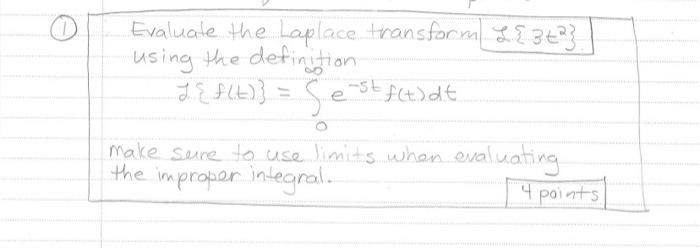 ① Evaluate the Laplace transform ℒ{3t²}
using the definition
ℒ{f(t)} = ∫₀^∞ e^{-st} f(t)dt
make sure to use limits when evaluating
the improper integral.
4 points